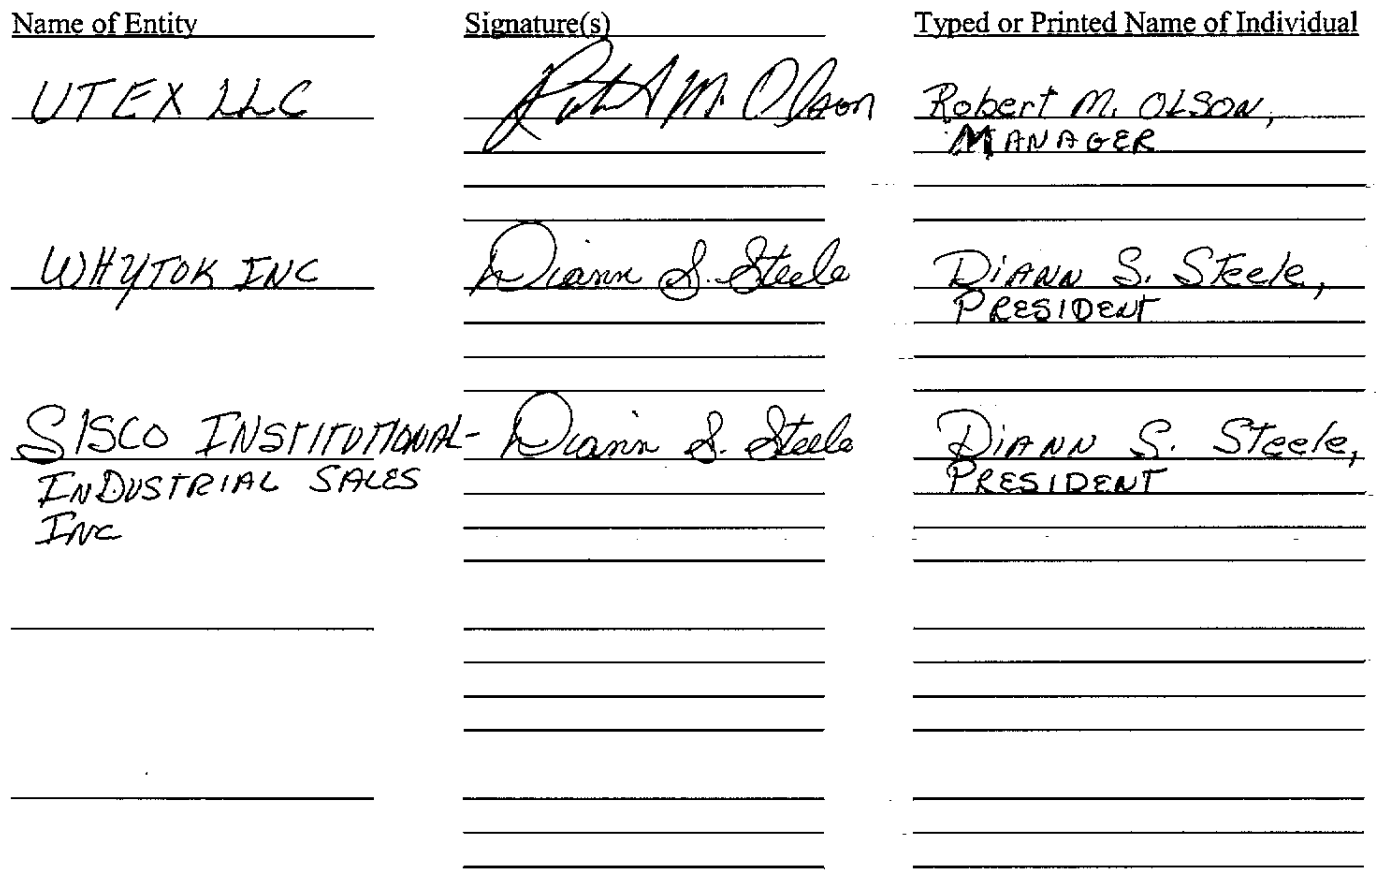 Name of Entity Signature(s) Typed or Printed Name of Individual
UTEX LLC Robert M. Olson Robert M. OLSON,
MANAGER
WHYTOK INC Diann S. Steele DiANN S. Steele,
PRESIDENT
SISCO INSTITUTIONAL- Diann S. Steele DiANN S. Steele,
INDUSTRIAL SALES PRESIDENT
INC